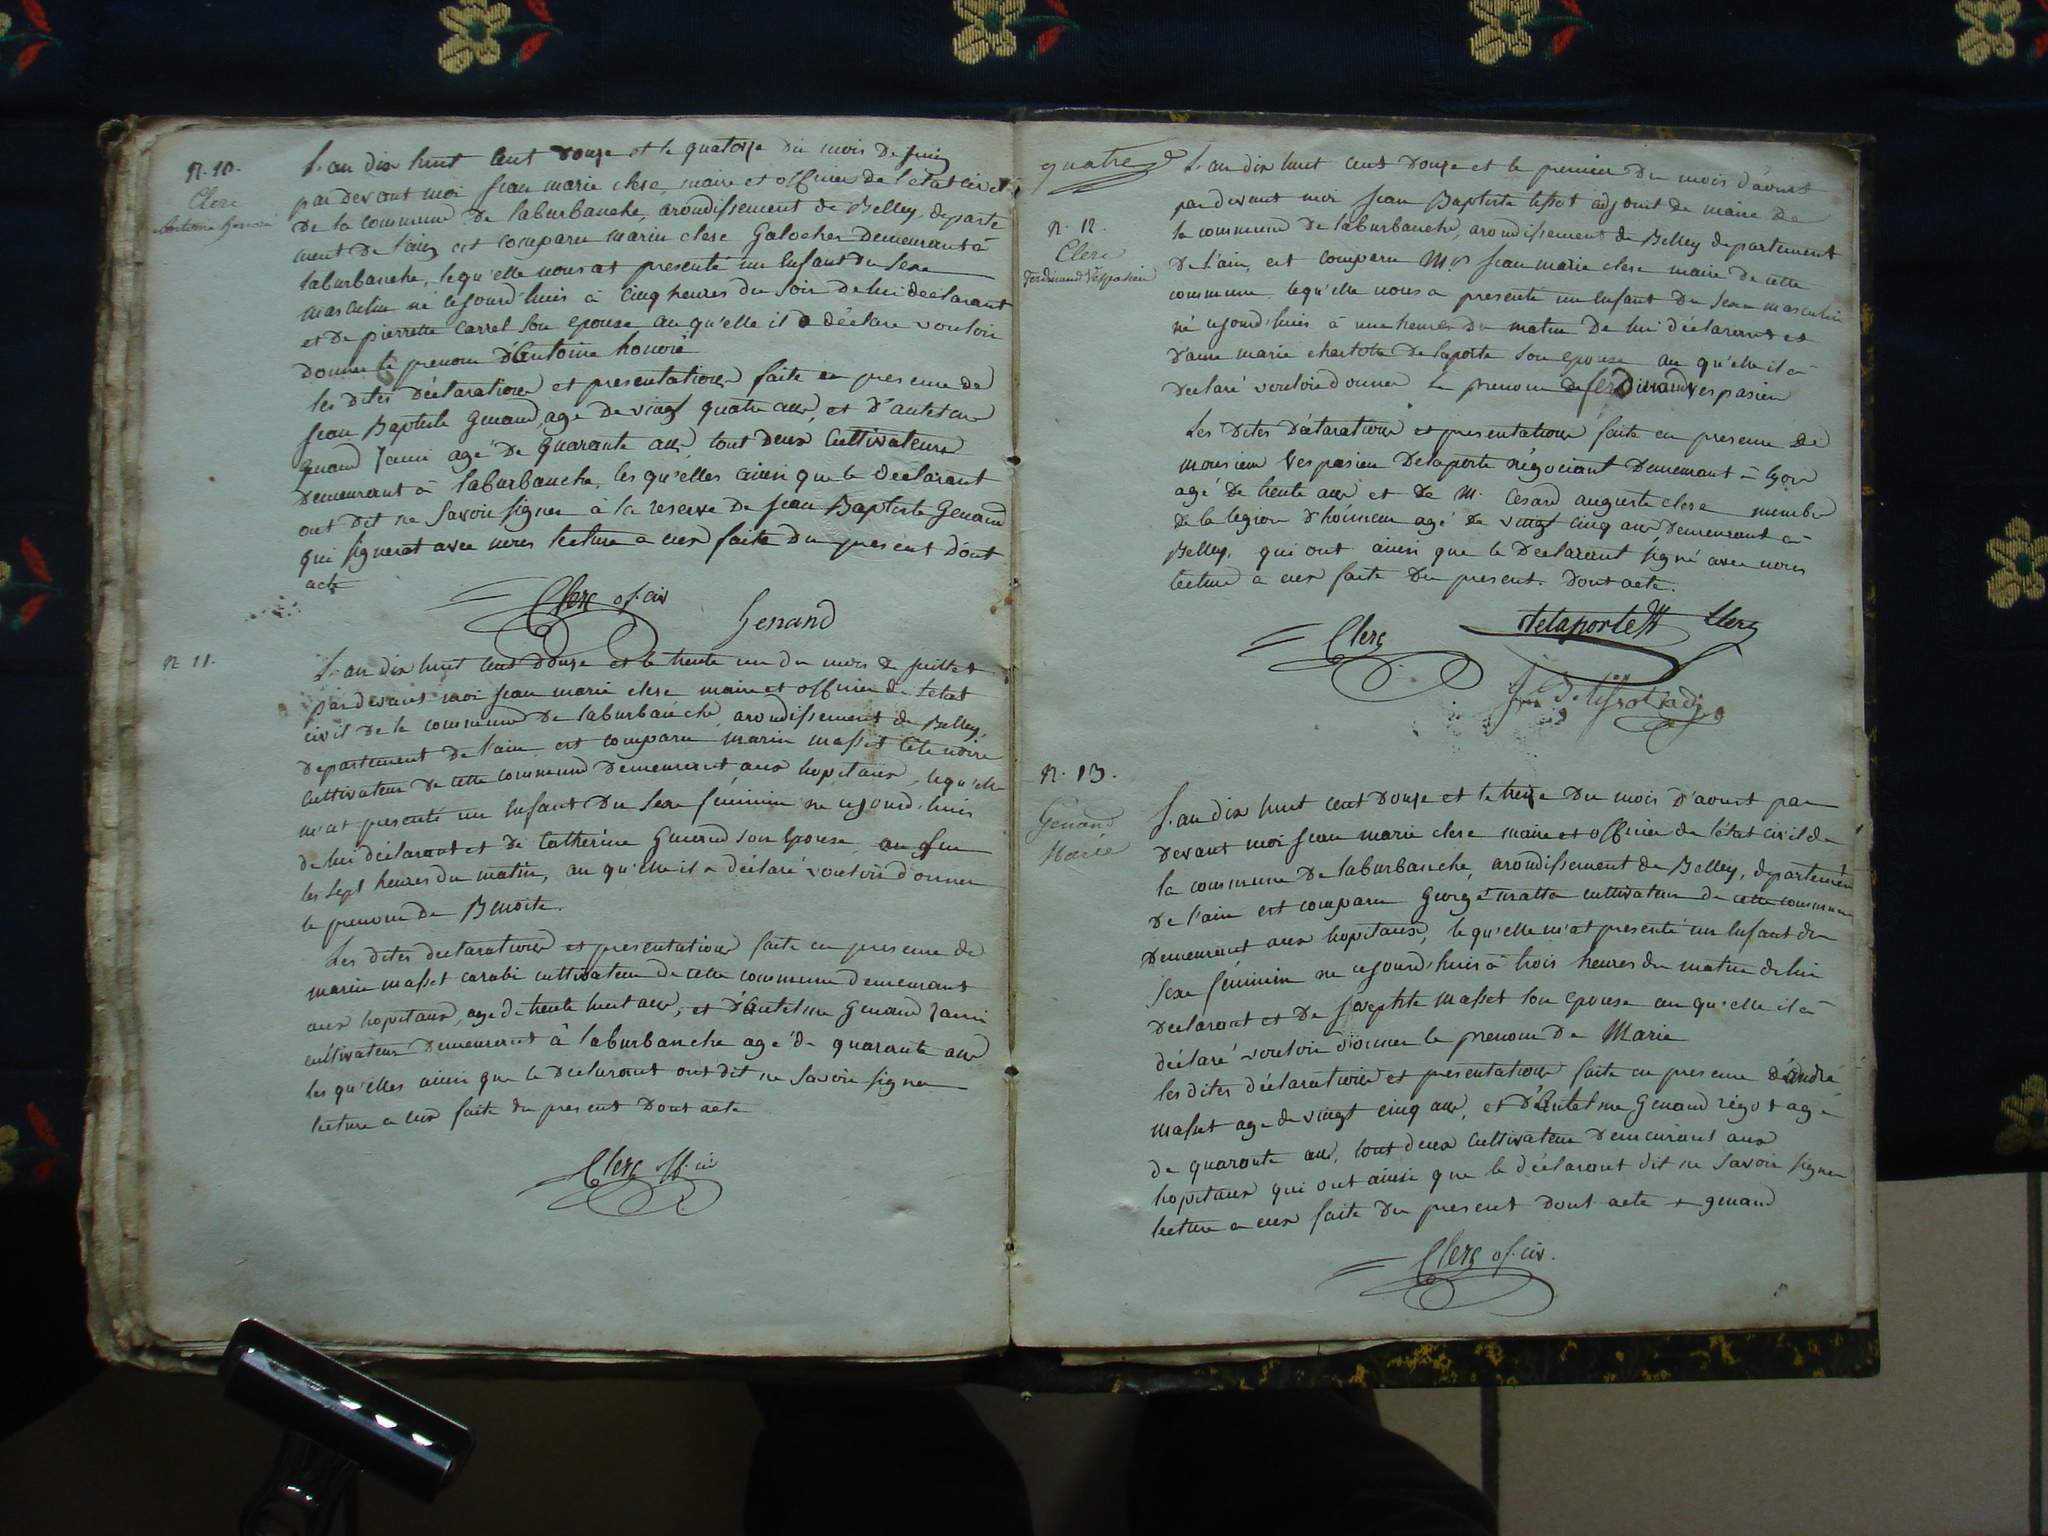 N. 10.
Clerc
Antoine honoré
L'an dix huit cent douze et le quatorze du mois de juin
par devant moi jean marie clerc, maire et officier de l'état civil
de la commune de laburbanche, arondissement de Belley, departe
ment de l'ain, est comparu marin clerc Galochez demeurant à
laburbanche, lequ'elle nous at presenté un enfant du sexe
masculin né cejourd'huis à cinq heures du soir de lui déclarant
et de pierrette carrel son epouse au qu'elle il a déclaré vouloir
donner le prenom d'Antoine honoré
les dites déclaration et presentation faite en presence de
jean Baptiste Genand, agé de vingt quatre ans, et d'antelme
genand Jami agé de quarante ans tout deux cultivateurs
demeurant à laburbanche, les qu'elles ainsi que le déclarant
ont dit ne savoir signer à la reserve de jean Baptiste Genand
qui signerat avec nous lecture a eux faite du present dont
acte
Clerc of. civ Genand
N. 11.
L'an dix huit cent douze et le trente un du mois de juillet
par devant moi jean marie clerc maire et officier de l'etat
civil de la commune de laburbanche, arondissement de Belley,
departement de l'ain est comparu marin masset tête noire
cultivateur de cette commune demeurant aux hopitaux, lequ'elle
m'at presenté un enfant du sexe féminin né cejourd'huis
de lui déclarant et de Catherine Guerend son epouse,
les sept heures du matin, au qu'elle il a déclaré vouloir donner
le prenom de Benoite.
Les dites declaration et presentation faite en presence de
marin masset carabi cultivateur de cette commune demeurant
aux hopitaux, agé de trente huit ans, et d'Antelme Genand Jami
cultivateur demeurant à laburbanche agé de quarante ans
les qu'elles ainsi que le déclarant ont dit ne savoir signer
lecture a eux faite du present dont acte
Clerc off. civ
quatre
N. 12.
Clerc
Ferdinand Vespasien
L'an dix huit cent douze et le premier du mois d'avout
par devant moi jean Baptiste tissot adjoint de maire de
la commune de laburbanche, arondissement de Belley departement
de l'ain, est comparu Mr jean marie clerc maire de cette
commune lequ'elle nous a presenté un enfant du sexe masculin
né cejourd'huis à une heures du matin de lui déclarant et
d'anne marie charlotte delaporte son epouse au qu'elle il à
declaré vouloir donner le prenom de ferdinand vespasien
Les dites déclaration et presentation faite en presence de
monsieur Vespasien Delaporte négociant demeurant à lyon
agé de trente ans et de M. Cesard auguste clerc membre
de la legion d'honneur agé de vingt cinq ans demeurant à
Belley, qui ont ainsi que le déclarant signé avec nous
lecture à eux faite du present. dont acte.
Clerc delaporte Clerc
J. B. tissot adj
N. 13.
Genand
Marie
L'an dix huit cent douze et le treize du mois d'avout par
devant moi jean marie clerc maire et officier de l'état civil de
la commune de laburbanche, arondissement de Belley, departement
de l'ain est comparu George matta cultivateur de cette commune
demeurant aux hopitaux, lequ'elle m'at presenté un enfant du
sexe féminin né cejourd'huis à trois heures du matin de lui
déclarant et de josephte masset son epouse au qu'elle il à
déclaré vouloir donner le prenom de Marie
les dites déclaration et presentation faite en presence d'andré
masset age de vingt cinq ans, et d'Antelme Genand régot agé
de quarante ans, tout deux cultivateur demeurant aux
hopitaux qui ont ainsi que le déclarant dit ne savoir signer
lecture a eux faite du present dont acte + genand
Clerc of. civ.